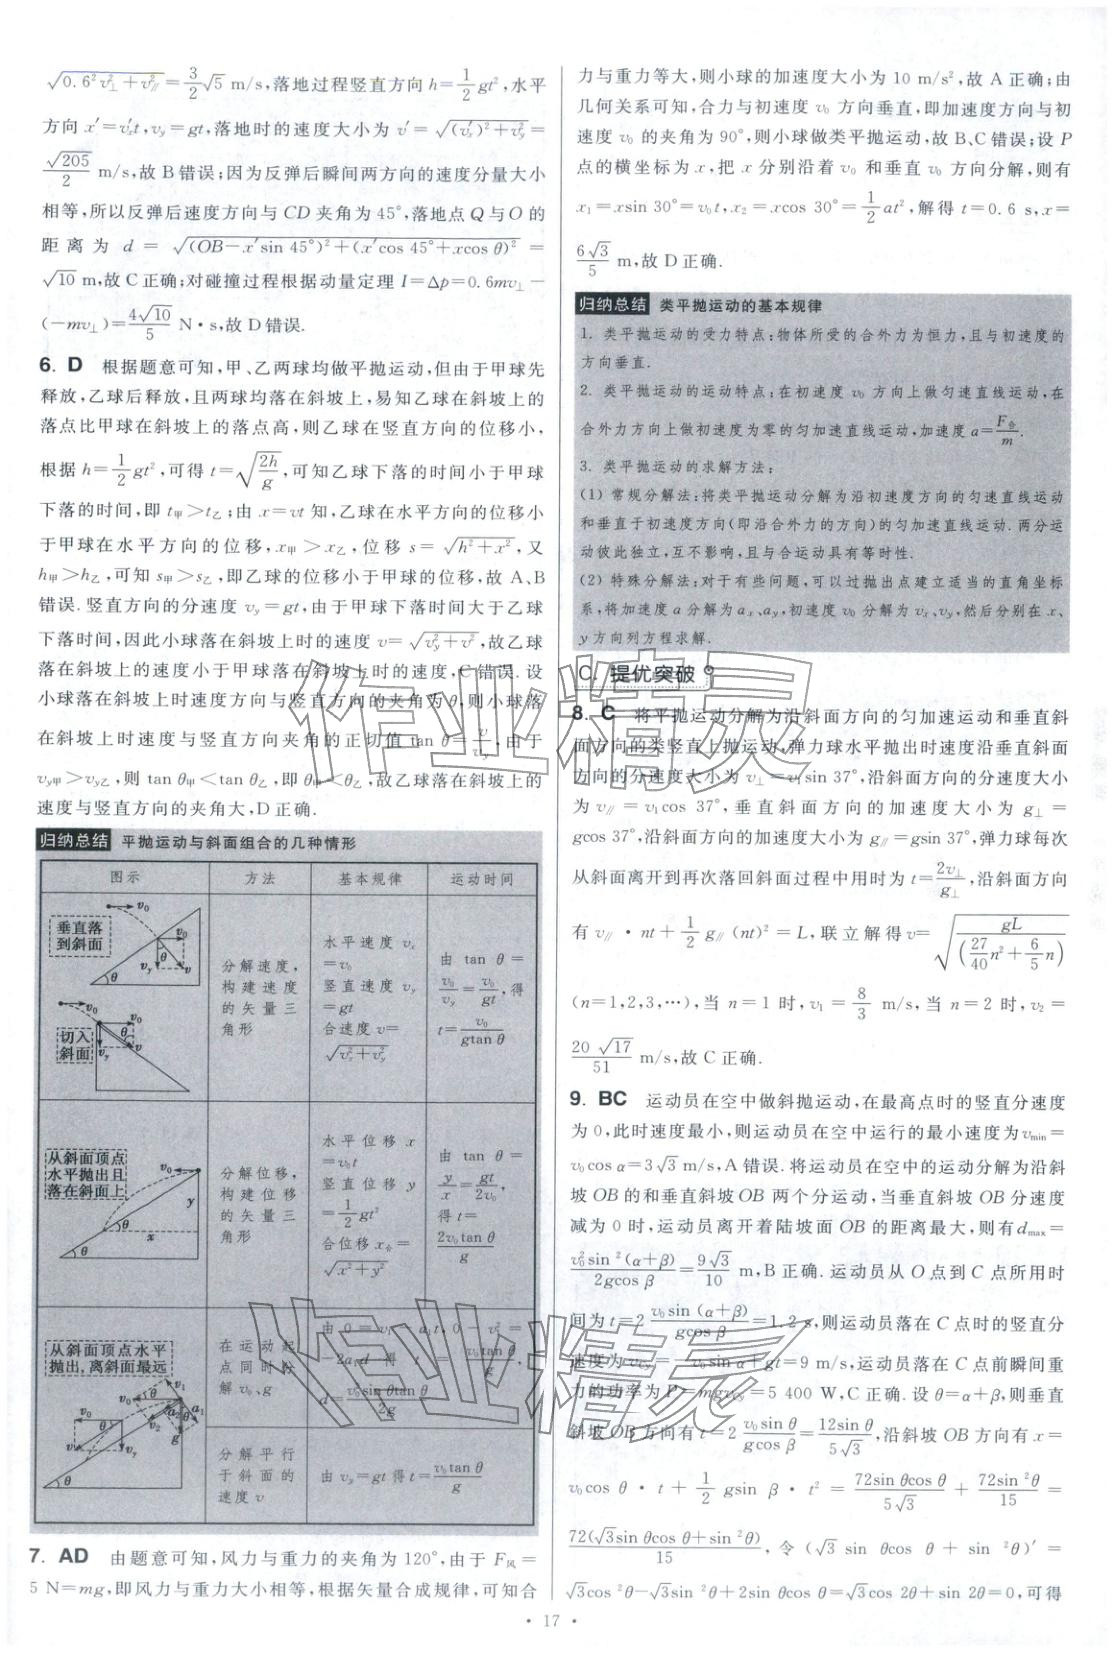 √(0.6²v⊥²+v∥²)=3/2√5 m/s,落地过程竖直方向 h=1/2gt²,水平
方向 x′=v′ₓt,v_y=gt,落地时的速度大小为 v′=√((v′ₓ)²+v_y²)=
√205/2 m/s,故 B 错误;因为反弹后瞬间两方向的速度分量大小
相等,所以反弹后速度方向与 CD 夹角为 45°,落地点 Q 与 O 的
距离为 d=√((OB-x′sin 45°)²+(x′cos 45°+xcos θ)²)=
√10 m,故 C 正确;对碰撞过程根据动量定理 I=Δp=0.6mv⊥-
(-mv⊥)=4√10/5 N·s,故 D 错误.
6. D 根据题意可知,甲、乙两球均做平抛运动,但由于甲球先
释放,乙球后释放,且两球均落在斜坡上,易知乙球在斜坡上的
落点比甲球在斜坡上的落点高,则乙球在竖直方向的位移小,
根据 h=1/2gt²,可得 t=√(2h/g),可知乙球下落的时间小于甲球
下落的时间,即 t甲>t乙;由 x=vt 知,乙球在水平方向的位移小
于甲球在水平方向的位移,x甲>x乙,位移 s=√(h²+x²),又
h甲>h乙,可知 s甲>s乙,即乙球的位移小于甲球的位移,故 A、B
错误.竖直方向的分速度 v_y=gt,由于甲球下落时间大于乙球
下落时间,因此小球落在斜坡上时的速度 v=√(v_y²+v²),故乙球
落在斜坡上的速度小于甲球落在斜坡上时的速度,C 错误.设
小球落在斜坡上时速度方向与竖直方向的夹角为 θ,则小球落
在斜坡上时速度与竖直方向夹角的正切值 tan θ=v/v_y,由于
v_y甲>v_y乙,则 tan θ甲<tan θ乙,即 θ甲<θ乙,故乙球落在斜坡上的
速度与竖直方向的夹角大,D 正确.
归纳总结 平抛运动与斜面组合的几种情形
图示 方法 基本规律 运动时间
垂直落
到斜面
v₀
v₀
v_y
v
θ
θ
切入
斜面
v₀
v₀
θ
v_y
v
分解速度,
构建速度
的矢量三
角形
水平速度 vₓ
=v₀
竖直速度 v_y
=gt
合速度 v=
√(vₓ²+v_y²)
由 tan θ=
v₀/v_y=v₀/gt,得
t=v₀/(gtan θ)
从斜面顶点
水平抛出且
落在斜面上
v₀
y
θ
x
θ
分解位移,
构建位移
的矢量三
角形
水平位移 x
=v₀t
竖直位移 y
=1/2gt²
合位移 x合=
√(x²+y²)
由 tan θ=
y/x=gt/2v₀,
得 t=
2v₀tan θ/g
从斜面顶点水平
抛出,离斜面最远
v₁
v₀
θ
v₂
a₂
θ
a₁
g
v₀
θ
v
v_y
θ
在运动起
点同时分
解 v₀、g
由 0=v₁-a₁t,0-v₁²=
-2a₁d 得 t=v₀tan θ/g,
d=v₀²sin θtan θ/2g
分解平行
于斜面的
速度 v
由 v_y=gt 得 t=v₀tan θ/g
7. AD 由题意可知,风力与重力的夹角为 120°,由于 F风=
5 N=mg,即风力与重力大小相等,根据矢量合成规律,可知合
力与重力等大,则小球的加速度大小为 10 m/s²,故 A 正确;由
几何关系可知,合力与初速度 v₀ 方向垂直,即加速度方向与初
速度 v₀ 的夹角为 90°,则小球做类平抛运动,故 B、C 错误;设 P
点的横坐标为 x,把 x 分别沿着 v₀ 和垂直 v₀ 方向分解,则有
x₁=xsin 30°=v₀t,x₂=xcos 30°=1/2at²,解得 t=0.6 s,x=
6√3/5 m,故 D 正确.
归纳总结 类平抛运动的基本规律
1. 类平抛运动的受力特点:物体所受的合外力为恒力,且与初速度的
方向垂直.
2. 类平抛运动的运动特点:在初速度 v₀ 方向上做匀速直线运动,在
合外力方向上做初速度为零的匀加速直线运动,加速度 a=F合/m.
3. 类平抛运动的求解方法:
(1) 常规分解法:将类平抛运动分解为沿初速度方向的匀速直线运动
和垂直于初速度方向(即沿合外力的方向)的匀加速直线运动.两分运
动彼此独立,互不影响,且与合运动具有等时性.
(2) 特殊分解法:对于有些问题,可以过抛出点建立适当的直角坐标
系,将加速度 a 分解为 aₓ、a_y,初速度 v₀ 分解为 vₓ、v_y,然后分别在 x、
y 方向列方程求解.
C. 提优突破
8. C 将平抛运动分解为沿斜面方向的匀加速运动和垂直斜
面方向的类竖直上抛运动,弹力球水平抛出时速度沿垂直斜面
方向的分速度大小为 v⊥=v₁sin 37°,沿斜面方向的分速度大小
为 v∥=v₁cos 37°,垂直斜面方向的加速度大小为 g⊥=
gcos 37°,沿斜面方向的加速度大小为 g∥=gsin 37°,弹力球每次
从斜面离开到再次落回斜面过程中用时为 t=2v⊥/g⊥,沿斜面方向
有 v∥·nt+1/2g∥(nt)²=L,联立解得 v=√(gL/(27/40n²+6/5n))
(n=1,2,3,…),当 n=1 时,v₁=8/3 m/s,当 n=2 时,v₂=
20√17/51 m/s,故 C 正确.
9. BC 运动员在空中做斜抛运动,在最高点时的竖直分速度
为 0,此时速度最小,则运动员在空中运行的最小速度为 v_min=
v₀cos α=3√3 m/s,A 错误.将运动员在空中的运动分解为沿斜
坡 OB 的和垂直斜坡 OB 两个分运动,当垂直斜坡 OB 分速度
减为 0 时,运动员离开着陆坡面 OB 的距离最大,则有 d_max=
v₀²sin²(α+β)/(2gcos β)=9√3/10 m,B 正确.运动员从 O 点到 C 点所用时
间为 t=2 v₀sin (α+β)/(gcos β)=1.2 s,则运动员落在 C 点时的竖直分
速度为 v_Cy=-v₀sin α+gt=9 m/s,运动员落在 C 点前瞬间重
力的功率为 P=mgv_Cy=5 400 W,C 正确.设 θ=α+β,则垂直
斜坡 OB 方向有 t=2 v₀sin θ/(gcos β)=12sin θ/5√3,沿斜坡 OB 方向有 x=
v₀cos θ·t+1/2gsin β·t²=72sin θcos θ/5√3+72sin²θ/15=
72(√3sin θcos θ+sin²θ)/15,令(√3sin θcos θ+sin²θ)′=
√3cos²θ-√3sin²θ+2sin θcos θ=√3cos 2θ+sin 2θ=0,可得
·17·
作业精灵
作业精灵